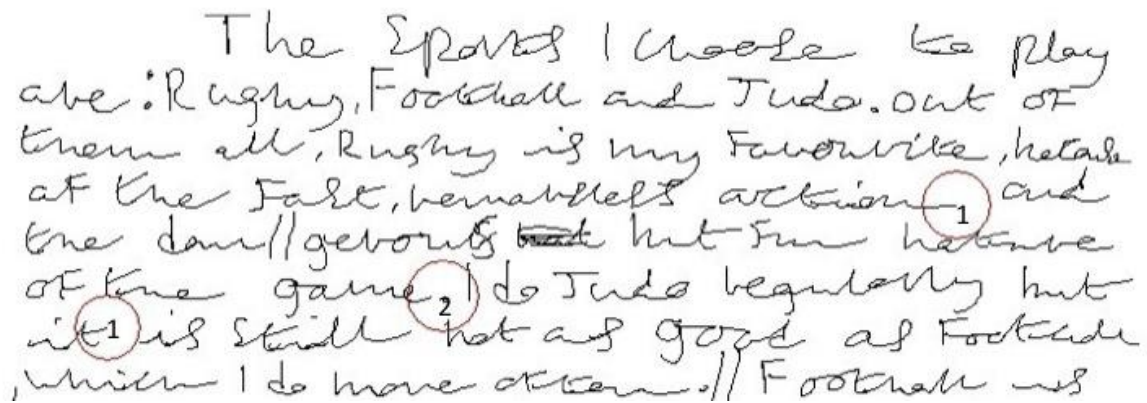 The Sports I choose to play
are: Rugby, Football and Judo. out of
them all, Rugby is my Favourite, becase
of the Fast, action 1 and
the dan//gerous but Fun nature
of the game. 2 I do Judo regularly but
it 1 is Still not as good as Football
, which I do more often.// Football is